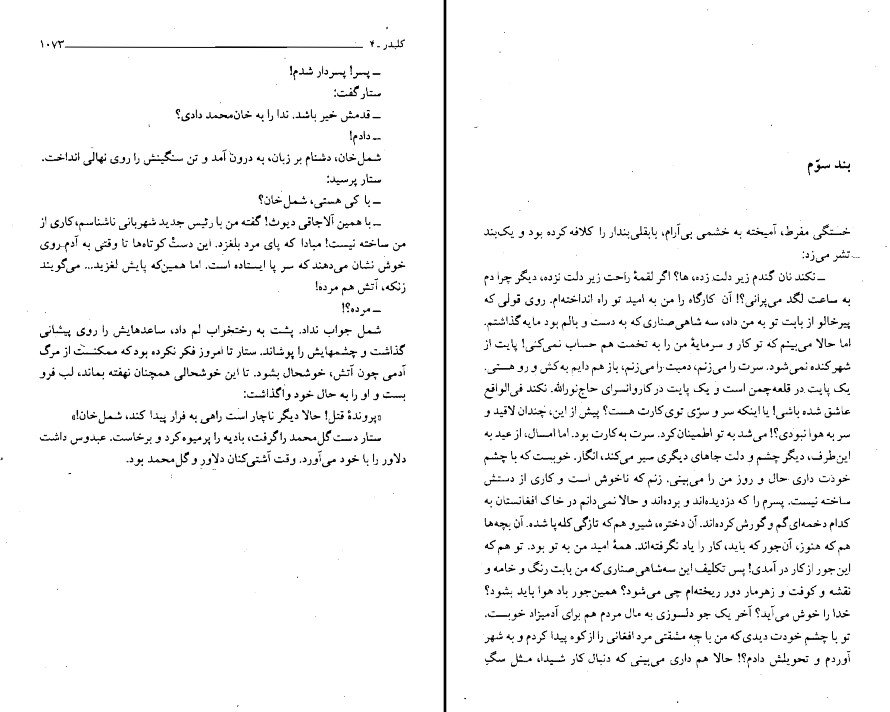 کلیدر ـ ۴ ۱۰۷۳
ـ پسر! پسردار شدم!
ستار گفت:
ـ قدمش خیر باشد. ندا را به خان‌محمد دادی؟
ـ دادم!
شمل‌خان، دشنام بر زبان، به درون آمد و تن سنگینش را روی نهالی انداخت.
ستار پرسید:
ـ با کی هستی، شمل‌خان؟
ـ با همین آلاجاقی دیوث! گفته من با رئیس جدید شهربانی ناشناسم، کاری از
من ساخته نیست! مبادا که پای مرد بلغزد. این دستْ کوتاه‌ها تا وقتی به آدم روی
خوش نشان می‌دهند که سر پا ایستاده است. اما همین‌که پایش لغزید... می‌گویند
زنکه، آتش هم مرده!
ـ مرده؟!
شمل جواب نداد. پشت به رختخواب لم داد، ساعدهایش را روی پیشانی
گذاشت و چشمهایش را پوشاند. ستار تا امروز فکر نکرده بود که ممکنست از مرگ
آدمی چون آتش، خوشحال بشود. تا این خوشحالی همچنان نهفته بماند، لب فرو
بست و او را به حال خود واگذاشت:
«پروندهٔ قتل! حالا دیگر ناچار است راهی به فرار پیدا کند، شمل‌خان!»
ستار دست گل‌محمد را گرفت، بادیه را پرمیوه کرد و برخاست. عبدوس داشت
دلاور را با خود می‌آورد. وقت آشتی‌کنان دلاور و گل‌محمد بود.
بند سوّم
خستگی مفرط، آمیخته به خشمی بی‌آرام، بابقلی‌بندار را کلافه کرده بود و یک‌بند
تشر می‌زد:
ـ نکند نان گندم زیر دلت زده، ها؟ اگر لقمهٔ راحت زیر دلت نزده، دیگر چرا دم
به ساعت لگد می‌پرانی؟! آن کارگاه را من به امید تو راه انداخته‌ام. روی قولی که
پیرخالو از بابت تو به من داد، سه شاهی صناری که به دست و بالم بود مایه گذاشتم.
اما حالا می‌بینم که تو کار و سرمایهٔ من را به تخمت هم حساب نمی‌کنی! پایت از
شهر کنده نمی‌شود. سرت را می‌زنم، دمبت را می‌زنم، باز هم دایم به‌کش و رو هستی.
یک پایت در قلعه‌چمن است و یک پایت در کاروانسرای حاج‌نورالله. نکند فی‌الواقع
عاشق شده باشی! یا اینکه سر و سرّی توی کارت هست؟ پیش از این، چندان لاقید و
سر به هوا نبودی؟! می‌شد به تو اطمینان کرد. سرت به کارت بود. اما امسال، از عید به
این‌طرف، دیگر چشم و دلت جاهای دیگری سیر می‌کند، انگار. خوبست که با چشم
خودت داری حال و روز من را می‌بینی. زنم که ناخوش است و کاری از دستش
ساخته نیست. پسرم را که دزدیده‌اند و برده‌اند و حالا نمی‌دانم در خاک افغانستان به
کدام دخمه‌ای گم و گورش کرده‌اند. آن دختره، شیرو هم که تازگی کله‌پا شده. آن بچه‌ها
هم که هنوز، آن‌جور که باید، کار را یاد نگرفته‌اند. همهٔ امید من به تو بود. تو هم که
این‌جور از کار در آمدی! پس تکلیف این سه‌شاهی صناری که من بابت رنگ و خامه و
نقشه و کوفت و زهرمار دور ریخته‌ام چی می‌شود؟ همین‌جور باد هوا باید بشود؟
خدا را خوش می‌آید؟ آخر یک جو دلسوزی به مال مردم هم برای آدمیزاد خوبست.
تو با چشم خودت دیدی که من با چه مشقتی مرد افغانی را از کوه پیدا کردم و به شهر
آوردم و تحویلش دادم؟! حالا هم داری می‌بینی که دنبال کار شیدا، مثل سگِ